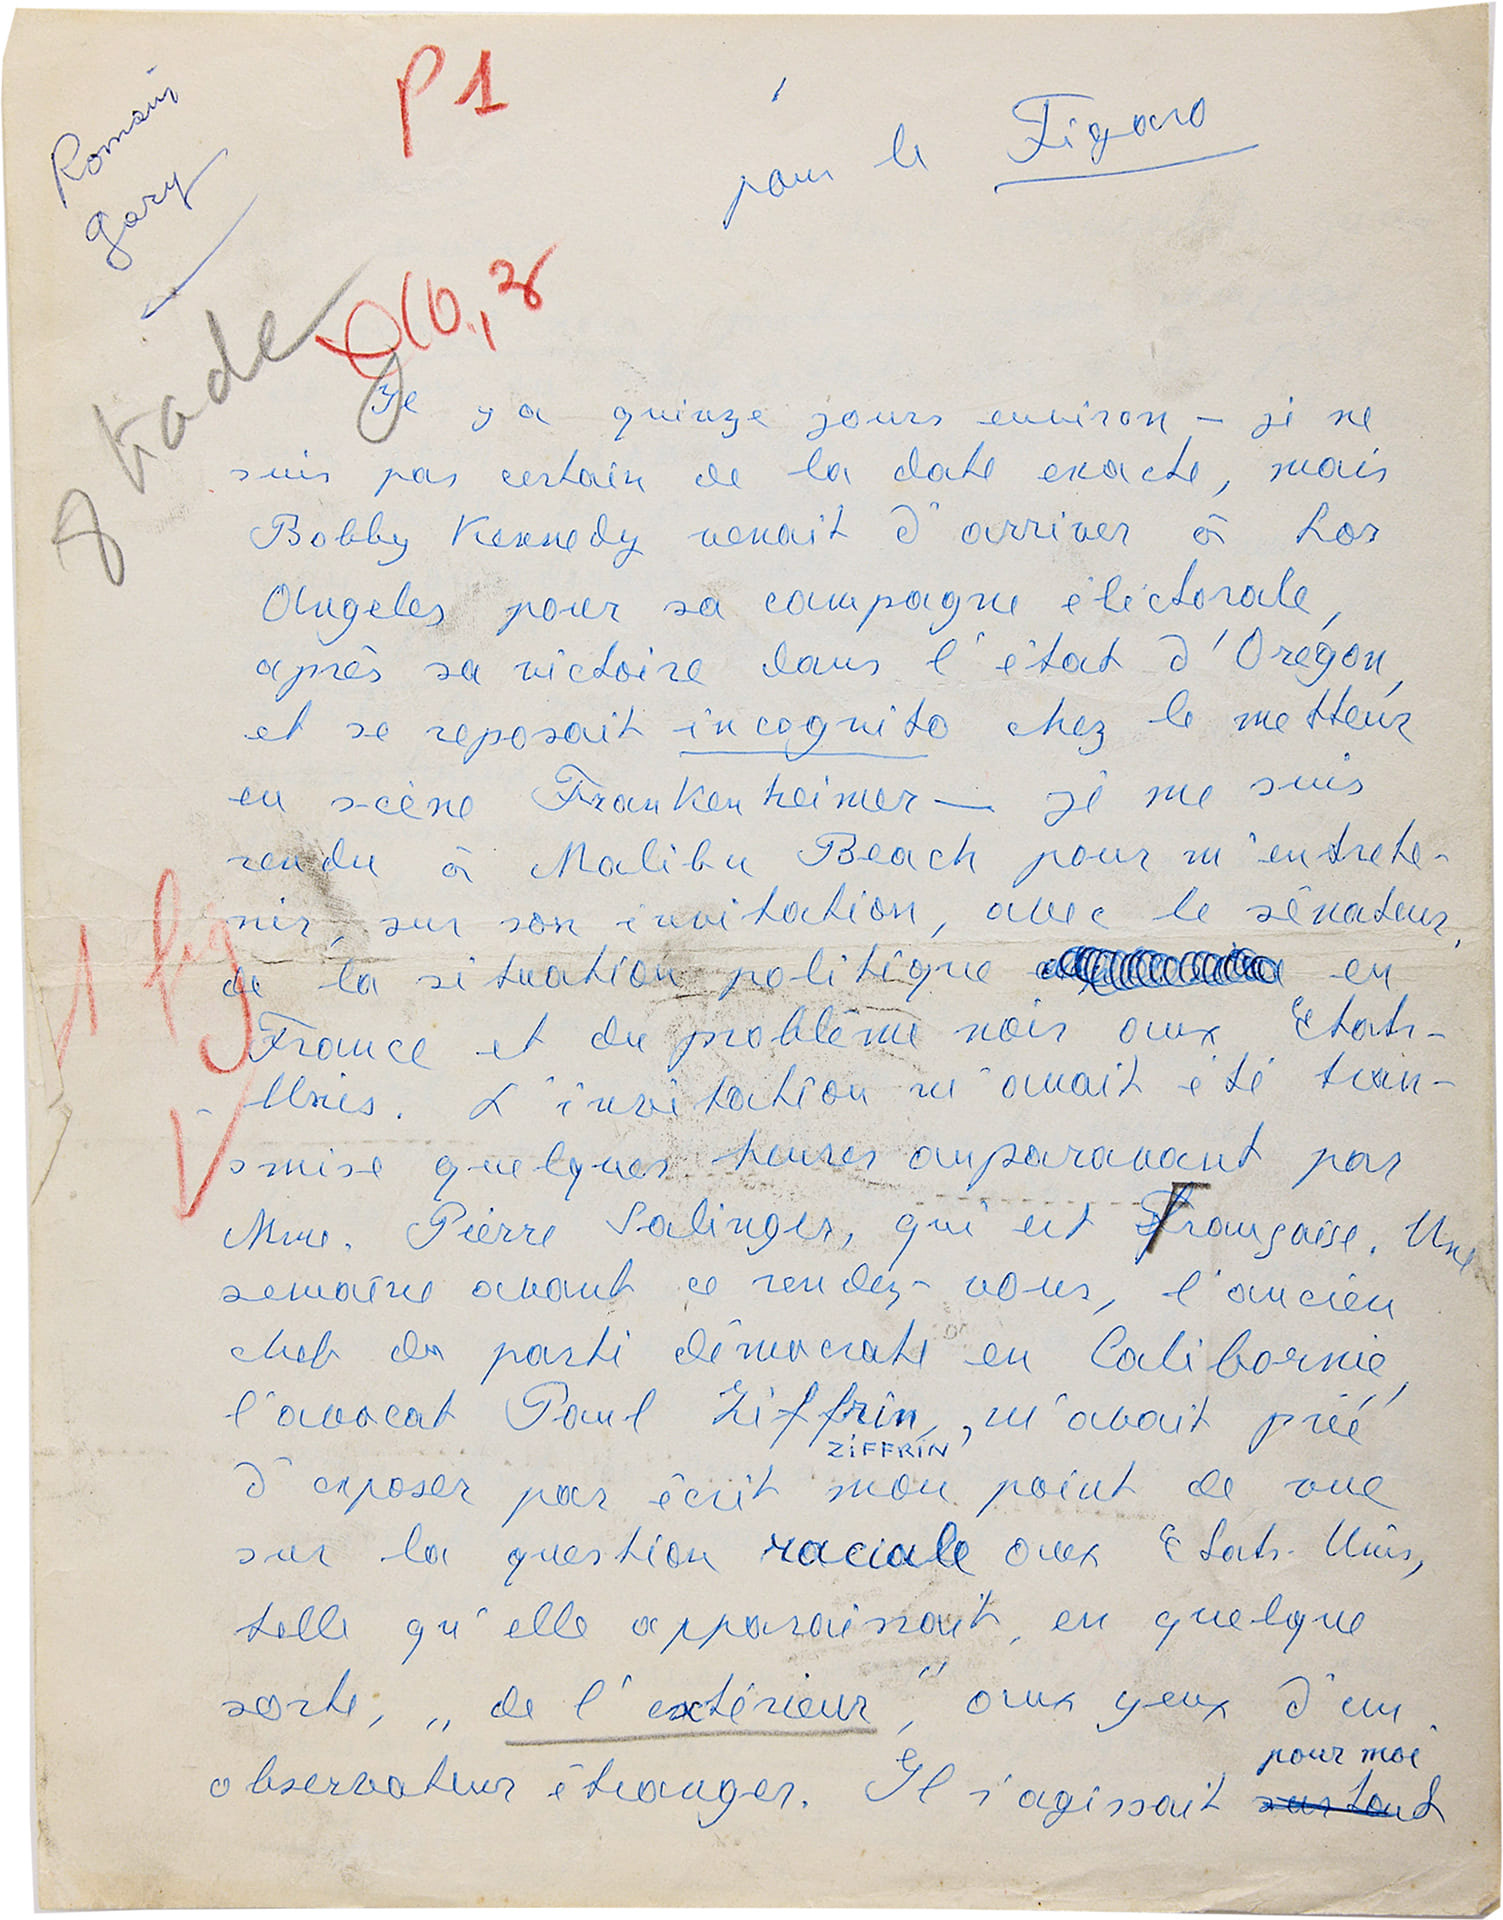 Romain
Gary
P 1
pour le Figaro
Il y a quinze jours environ — je ne
suis pas certain de la date exacte, mais
Bobby Kennedy venait d'arriver à Los
Angeles pour sa campagne électorale,
après sa victoire dans l'état d'Orégon,
et se reposait incognito chez le metteur
en scène Frankenheimer — je me suis
rendu à Malibu Beach pour m'entrete-
nir, sur son invitation, avec le sénateur,
de la situation politique en
France et du problème noir aux Etats-
-Unis. L'invitation m'avait été tran-
smise quelques heures auparavant par
Mme. Pierre Salinger, qui est Française. Une
semaine avant ce rendez-vous, l'ancien
chef du parti démocrate en Californie,
l'avocat Paul Ziffrin, m'avait prié
ZIFFRIN
d'exposer par écrit mon point de vue
sur la question raciale aux Etats-Unis,
telle qu'elle apparaissait, en quelque
sorte, „de l'extérieur", aux yeux d'un
observateur étranger. Il s'agissait surtout
pour moi
1 fig